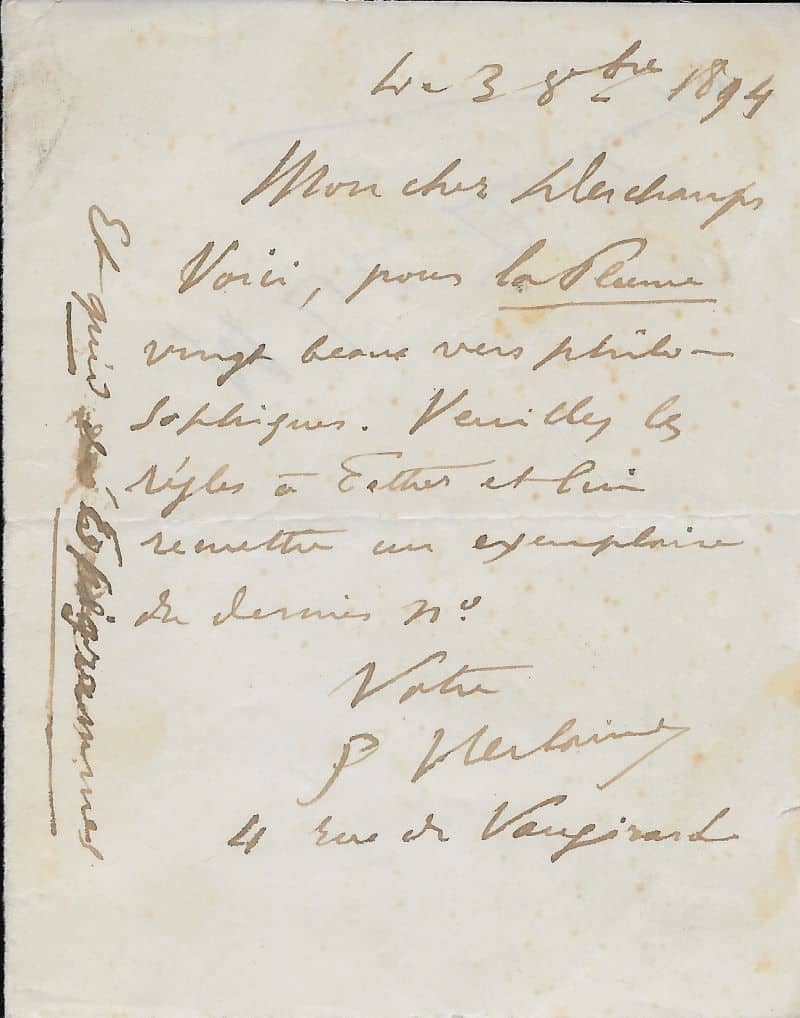 Le 3 8bre 1894
Mon cher Deschamps
Voici, pour la Plume
vingt beaux vers philo-
sophiques. Veuillez les
régler à Esther et lui
remettre un exemplaire
du dernier no
Votre
P Verlaine
4 rue de Vaugirard
Et quid des Épigrammes